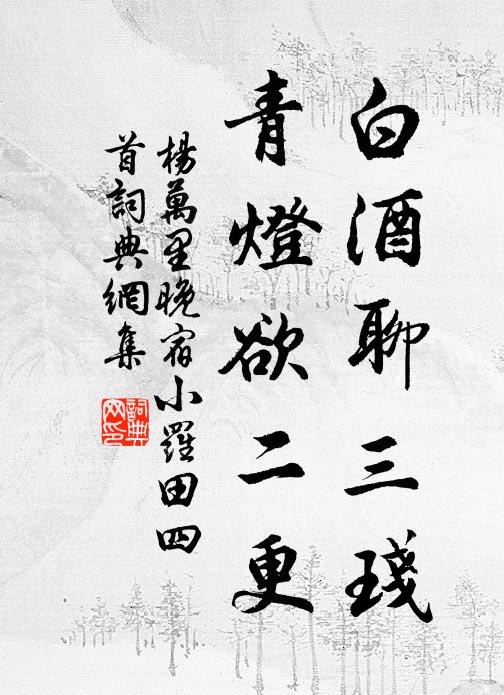 白酒聊三琖
青燈欲二更
楊萬里晚宿小羅田四
首詞典網集
詞典网印